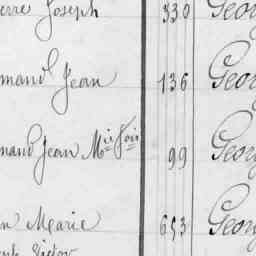 erre Joseph 330 Georg
mand Jean 136 Georg
mand Jean Mie Fois 99 Georg
n Marie 653 Georg
Victor